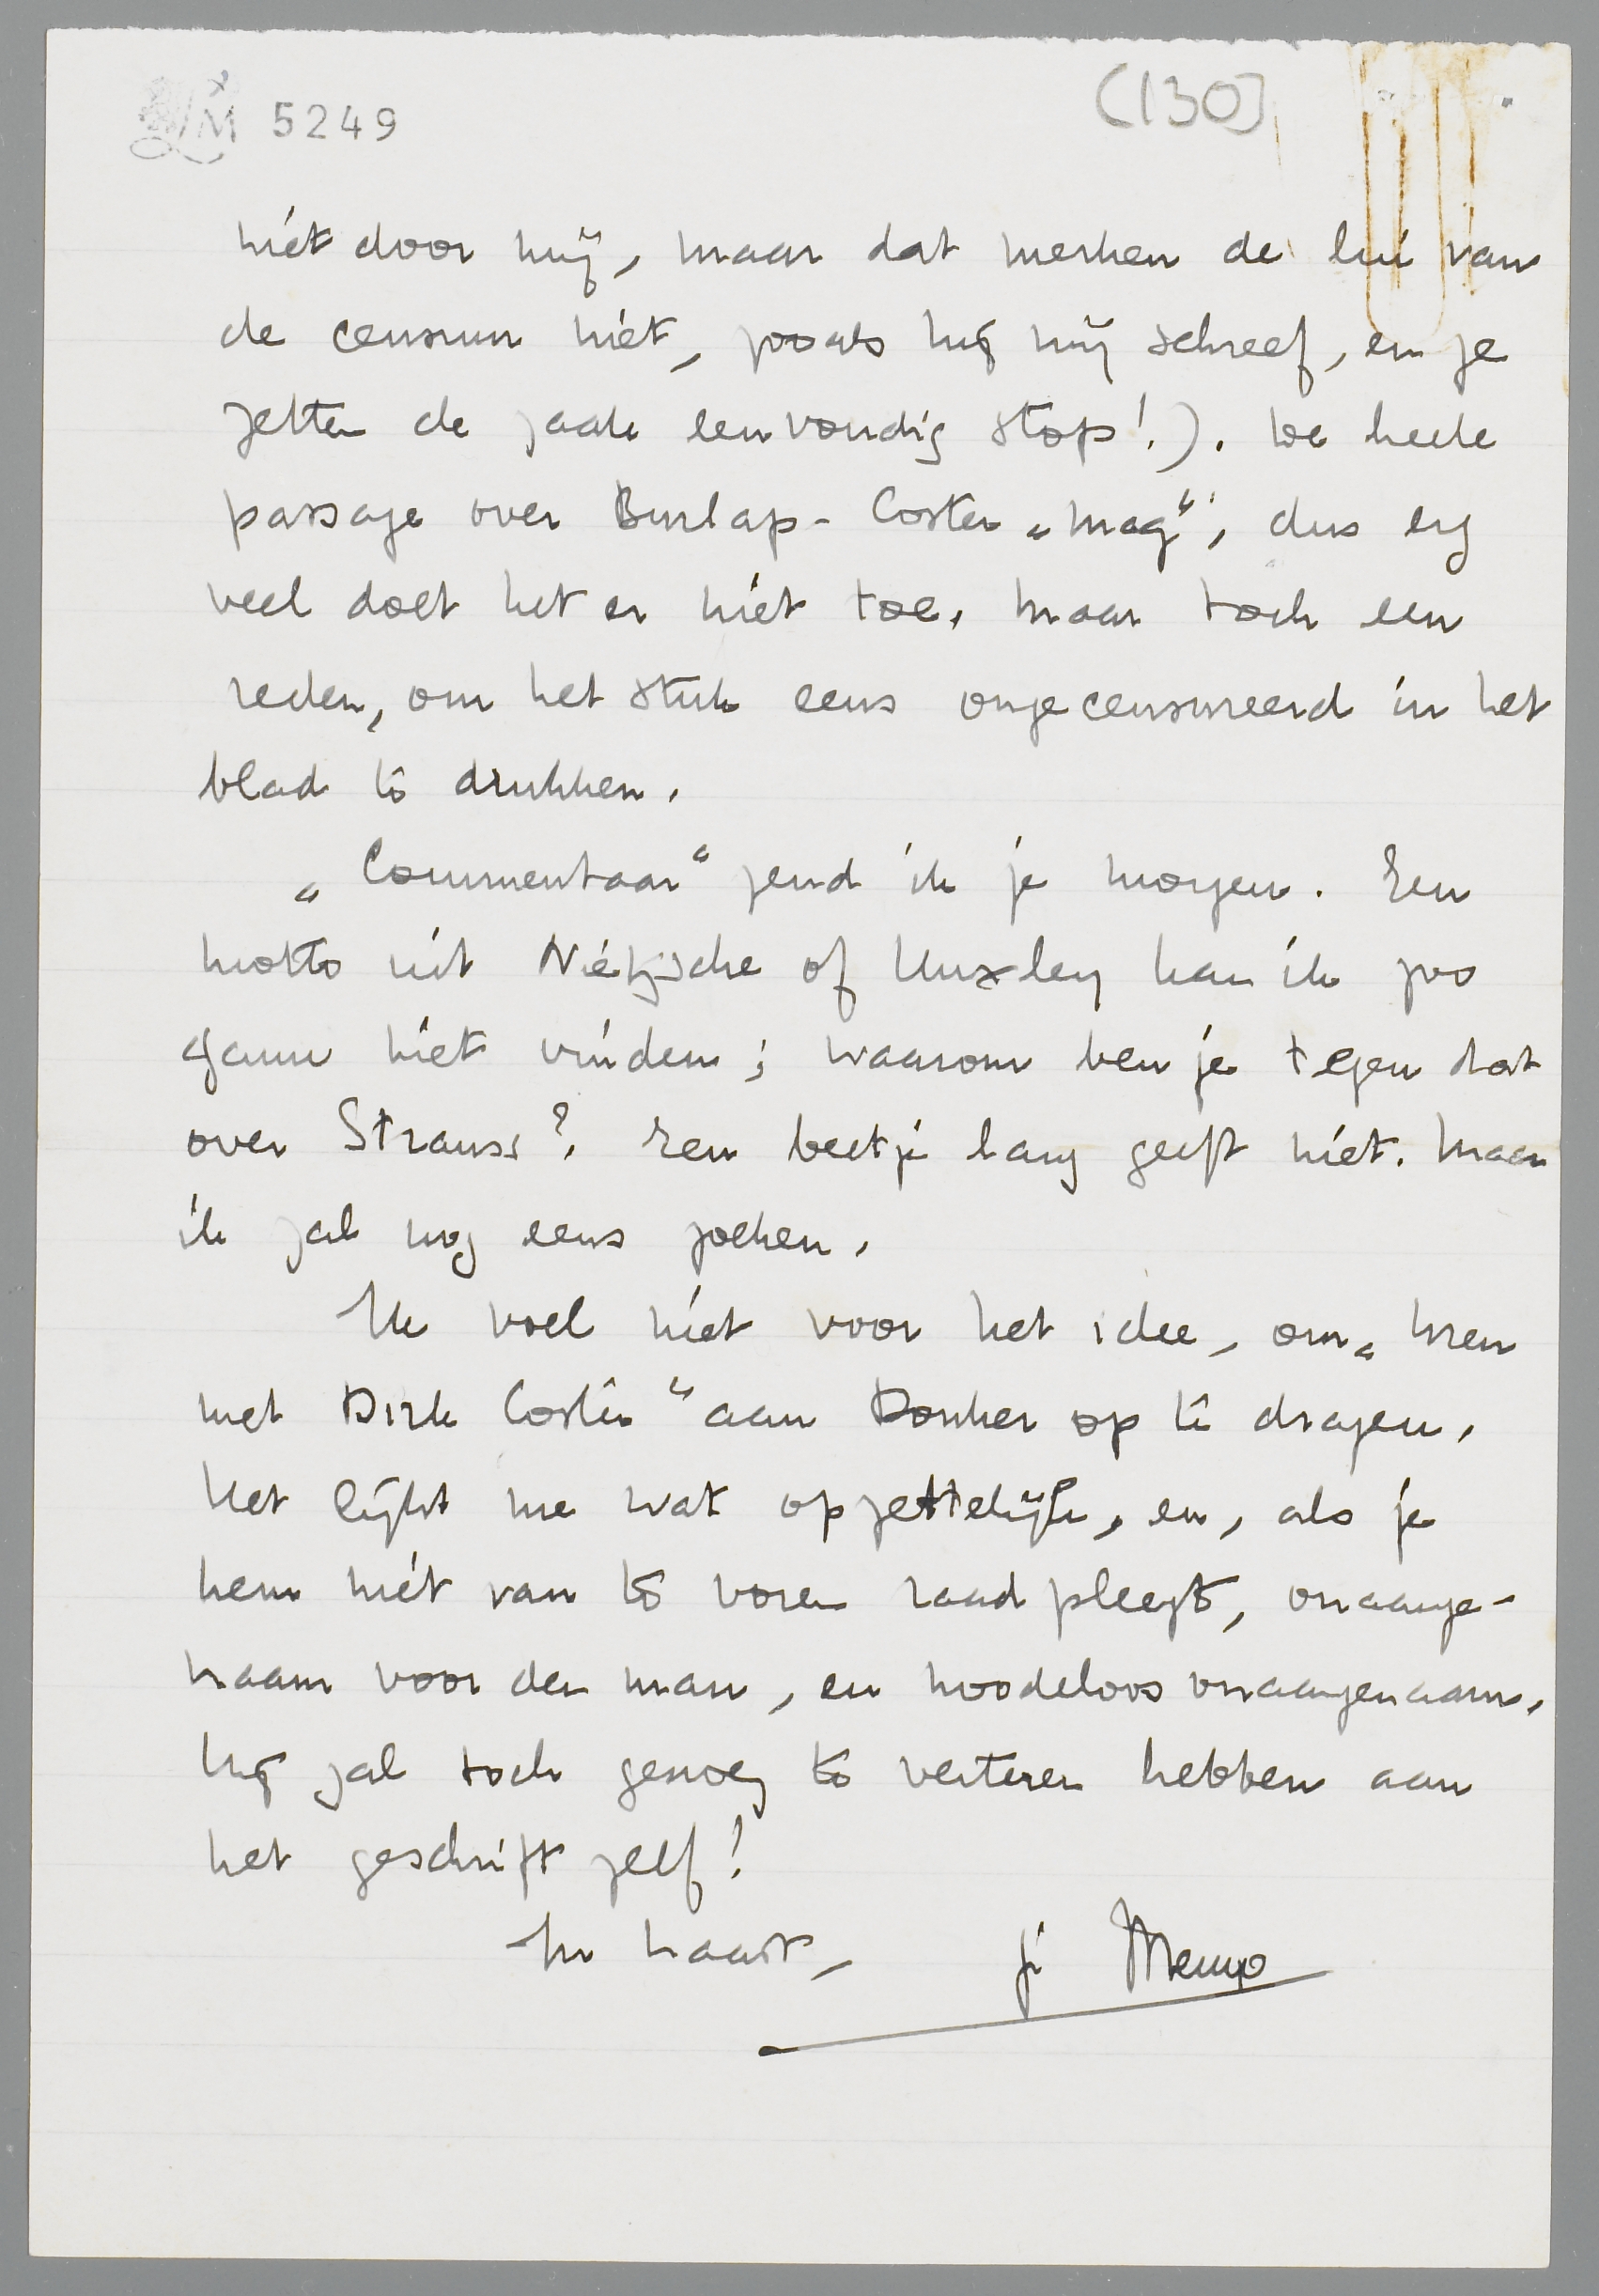 LM 5249
(130)
niet door mij, maar dat merken de lui van
de censuur niet, zooals hij mij schreef, en ze
zetten de zaak eenvoudig stop!). De heele
passage over Burlap-Coster „mag", dus erg
veel doet het er niet toe. Maar toch een
reden, om het stuk eens ongecensureerd in het
blad te drukken.
„Commentaar" zend ik je morgen. Een
motto uit Nietzsche of Huxley kan ik zoo
gauw niet vinden; waarom ben je tegen dat
over Strauss? Een beetje lang geeft niet. Maar
ik zal nog eens zoeken.
Ik voel niet voor het idee, om „Uren
met Dirk Coster" aan Donker op te dragen.
Het lijkt me wat opzettelijk, en, als je
hem niet van te voren raadpleegt, onaange-
naam voor den man, en noodeloos onaangenaam.
Hij zal toch genoeg te verteren hebben aan
het geschrift zelf!
In haast, je Menno